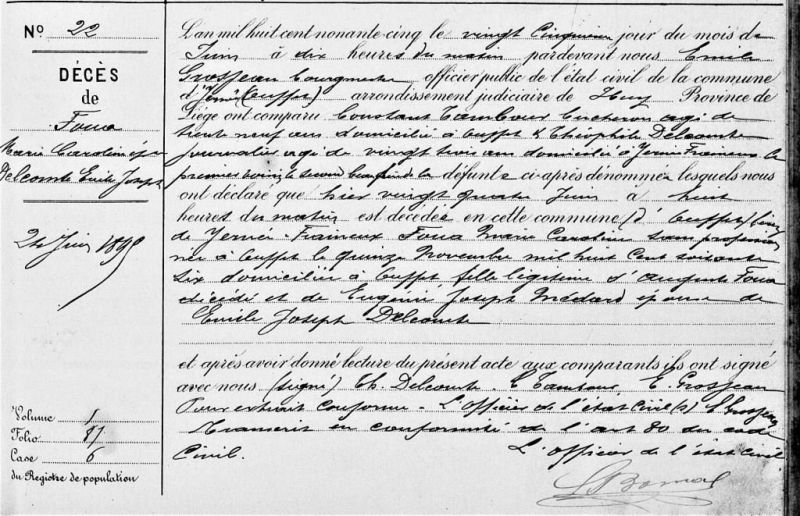 No 22
DÉCÈS
de
Foua
Marie Caroline épse
Delcomte Emile Joseph
24 Juin 1895
Volume 1
Folio 87
Case 6
du Registre de population
L'an mil huit cent nonante-cinq le vingt cinquième jour du mois de
Juin à dix heures du matin pardevant nous Emile
Grosjean bourgmestre officier public de l'état civil de la commune
d' arrondissement judiciaire de Huy Province de
Liége ont comparu Constant Tambour agé de
neuf ans domicilié à & Théophile Delcomte
journalier agé de vingt trois ans domicilié à Fraineux le
premier voisin le second de la défunte ci-après dénommée lesquels nous
ont déclaré que hier vingt quatre Juin à huit
heures du matin est décédée en cette commune
de Yernée-Fraineux Foua Marie Caroline sans profession
née à le quinze Novembre mil huit cent soixante
six domiciliée à fille légitime d'Auguste Foua
décédé et de Joseph Médard épouse de
Emile Joseph Delcomte
et après avoir donné lecture du présent acte aux comparants ils ont signé
avec nous (signé) Th. Delcomte. C Tambour E. Grosjean
Pour extrait conforme. L'officier de l'état civil (s) E Grosjean
Transcrit en conformité de l'art 80 du code
Civil. L'officier de l'état civil